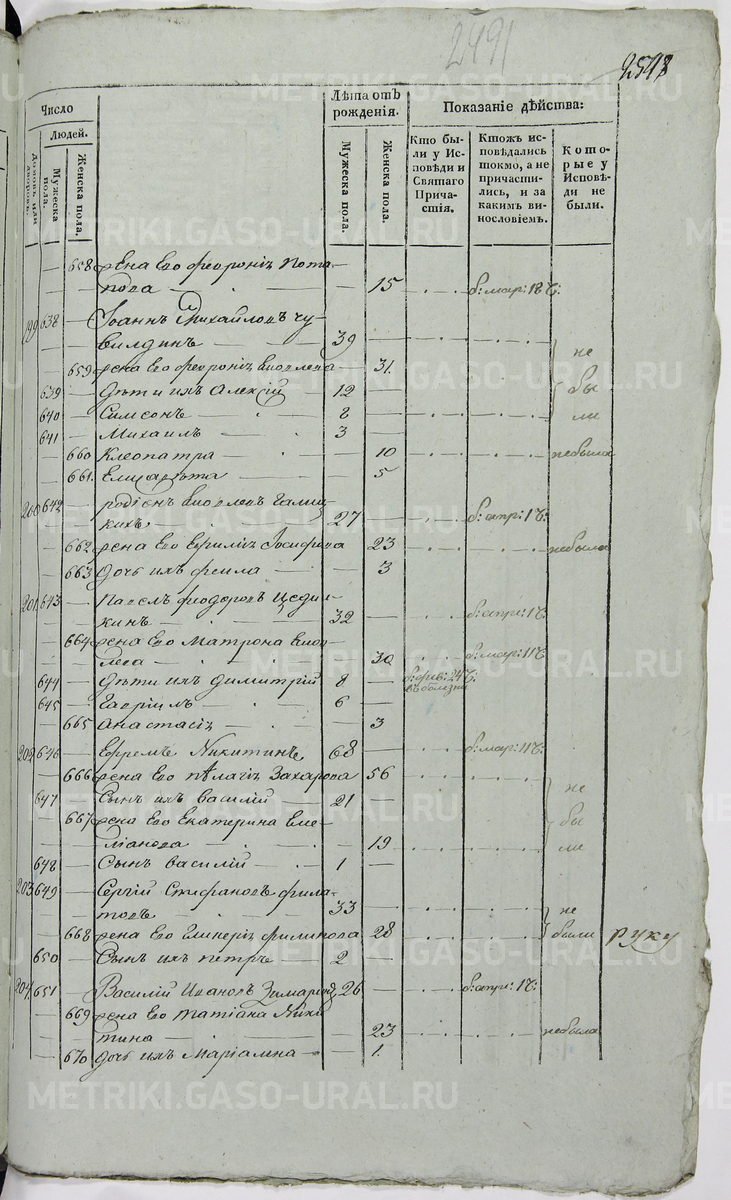 2491
2548
Число
Людей.
Домовъ или дворовъ.
Мужеска пола.
Женска пола.
Лѣта отъ рожденія.
Мужеска пола.
Женска пола.
Показаніе дѣйства:
Кто бы-
ли у Ис-
повѣди и
Святаго
Прича-
стія.
Ктожъ ис-
повѣдались
токмо, а не
причасти-
лись, и за
какимъ ви-
нословіемъ.
Кото-
рые у
Исповѣ-
ди не
были.
658 жена Его феуронія Пота-
пова 15 б: мар: 18 ч:
199 638 Іоаннъ Михайловъ чу-
вилдинъ 39
659 жена Его феуронія Яковлева 31. не
639 Дѣти ихъ Алексій 12 бы
640 Симеонъ 8 ли
641 Михаилъ 3
660 Клеопатра 10 небыла
661. Елисавета 5
200 642 родіонъ Яковлевъ Галиц-
кихъ 27 б: апр: 1 ч:
662 жена Его Ефимія Іосифова 23 небыла
663 Дочь ихъ фекла 3
201 643 Павелъ феодоровъ
кинъ 32 б: апр: 1 ч:
664 жена Его Матрона Яков-
лева 30 б: мар: 11 ч:
644 Дѣти ихъ Димитрій 8 б: фев: 24 ч:
въ болезни
645 Гавріилъ 6
665 Анастасія 3
202 646 Ефремъ Никитинъ 68 б: мар: 11 ч:
666 жена Его пѣлагія Захарова 56
647 Сынъ ихъ василій 21 не
667 жена Его Екатерина Еме- бы
ліанова 19 ли
648 Сынъ василій 1
203 649 Сергій Стифановъ фила-
товъ 33 не
668 жена Его Гликерія филипова 28 были руку
650 Сынъ ихъ петръ 2
204 651 Василій Ивановъ 26 б: апр: 1 ч:
669 жена Его татіана Ники-
тина 23 небыла
670 Дочь ихъ Маріамна 1.
METRIKI.GASO-URAL.RU